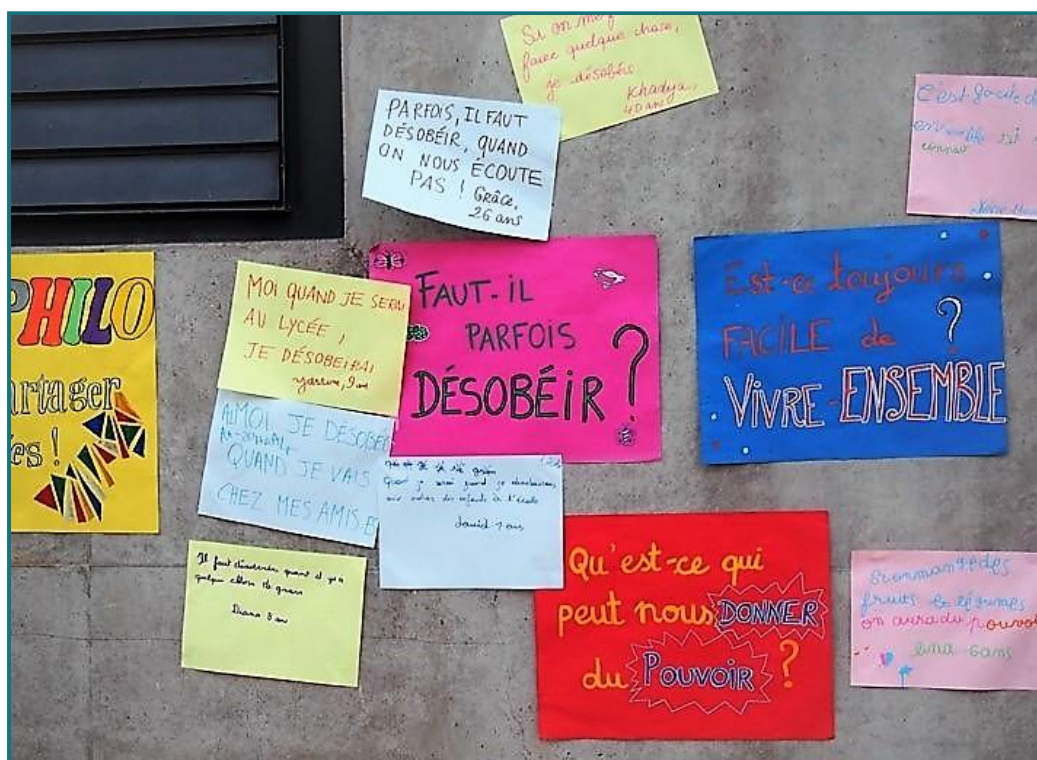 Si on me
faire quelque chose,
je désobéis
Khadija,
40 ans
PARFOIS, IL FAUT
DÉSOBÉIR, QUAND
ON NOUS ÉCOUTE
PAS ! Grâce,
26 ans
C'est facile d
ensemble si
PHILO
artager
es !
MOI QUANd JE SERAI
AU LYCÉE,
JE DÉSOBEIRAI
9 ans
FAUT-iL
PARFOIS
DÉSOBÉiR ?
Est-ce toujours
FACILE de ?
ViVRE-ENSEMBLE
MOI, JE DESOBEI
QUAND JE VAIS
CHEZ MES AMIS.ES
Quand je serai grand je
aux enfants à l'école
David 7 ans
Il faut désobéir quand il y a
quelque chose de grave
Diana 8 ans
Qu'est-ce qui
peut nous DONNER
du POUVOiR ?
Si on mange des
fruits et légumes
on aura du pouvoi
Lina 6 ans